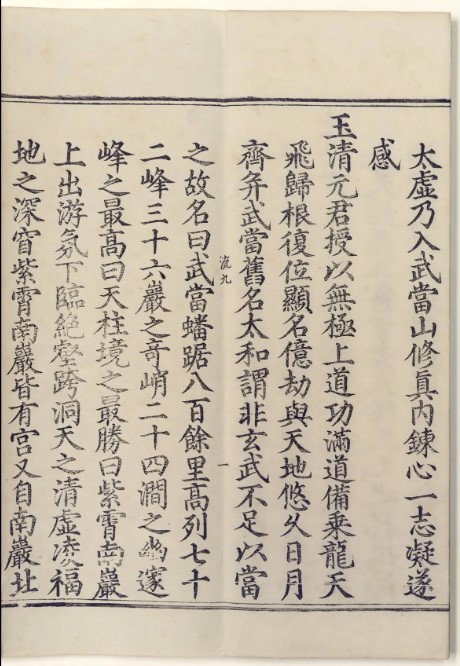 太虛乃入武當山修眞內鍊心一志凝遂
感
玉清元君授以無極上道功滿道備乗龍天
飛歸根復位顯名億劫與天地悠久日月
齊并武當舊名太和謂非玄武不足以當
流九
一
之故名曰武當蟠踞八百餘里高列七十
二峰三十六巖之奇峭二十四澗之幽邃
峰之最高曰天柱境之最勝曰紫霄南巖
上出游氛下臨絶壑跨洞天之清虛凌福
地之深窅紫霄南巖皆有宫又自南巖北